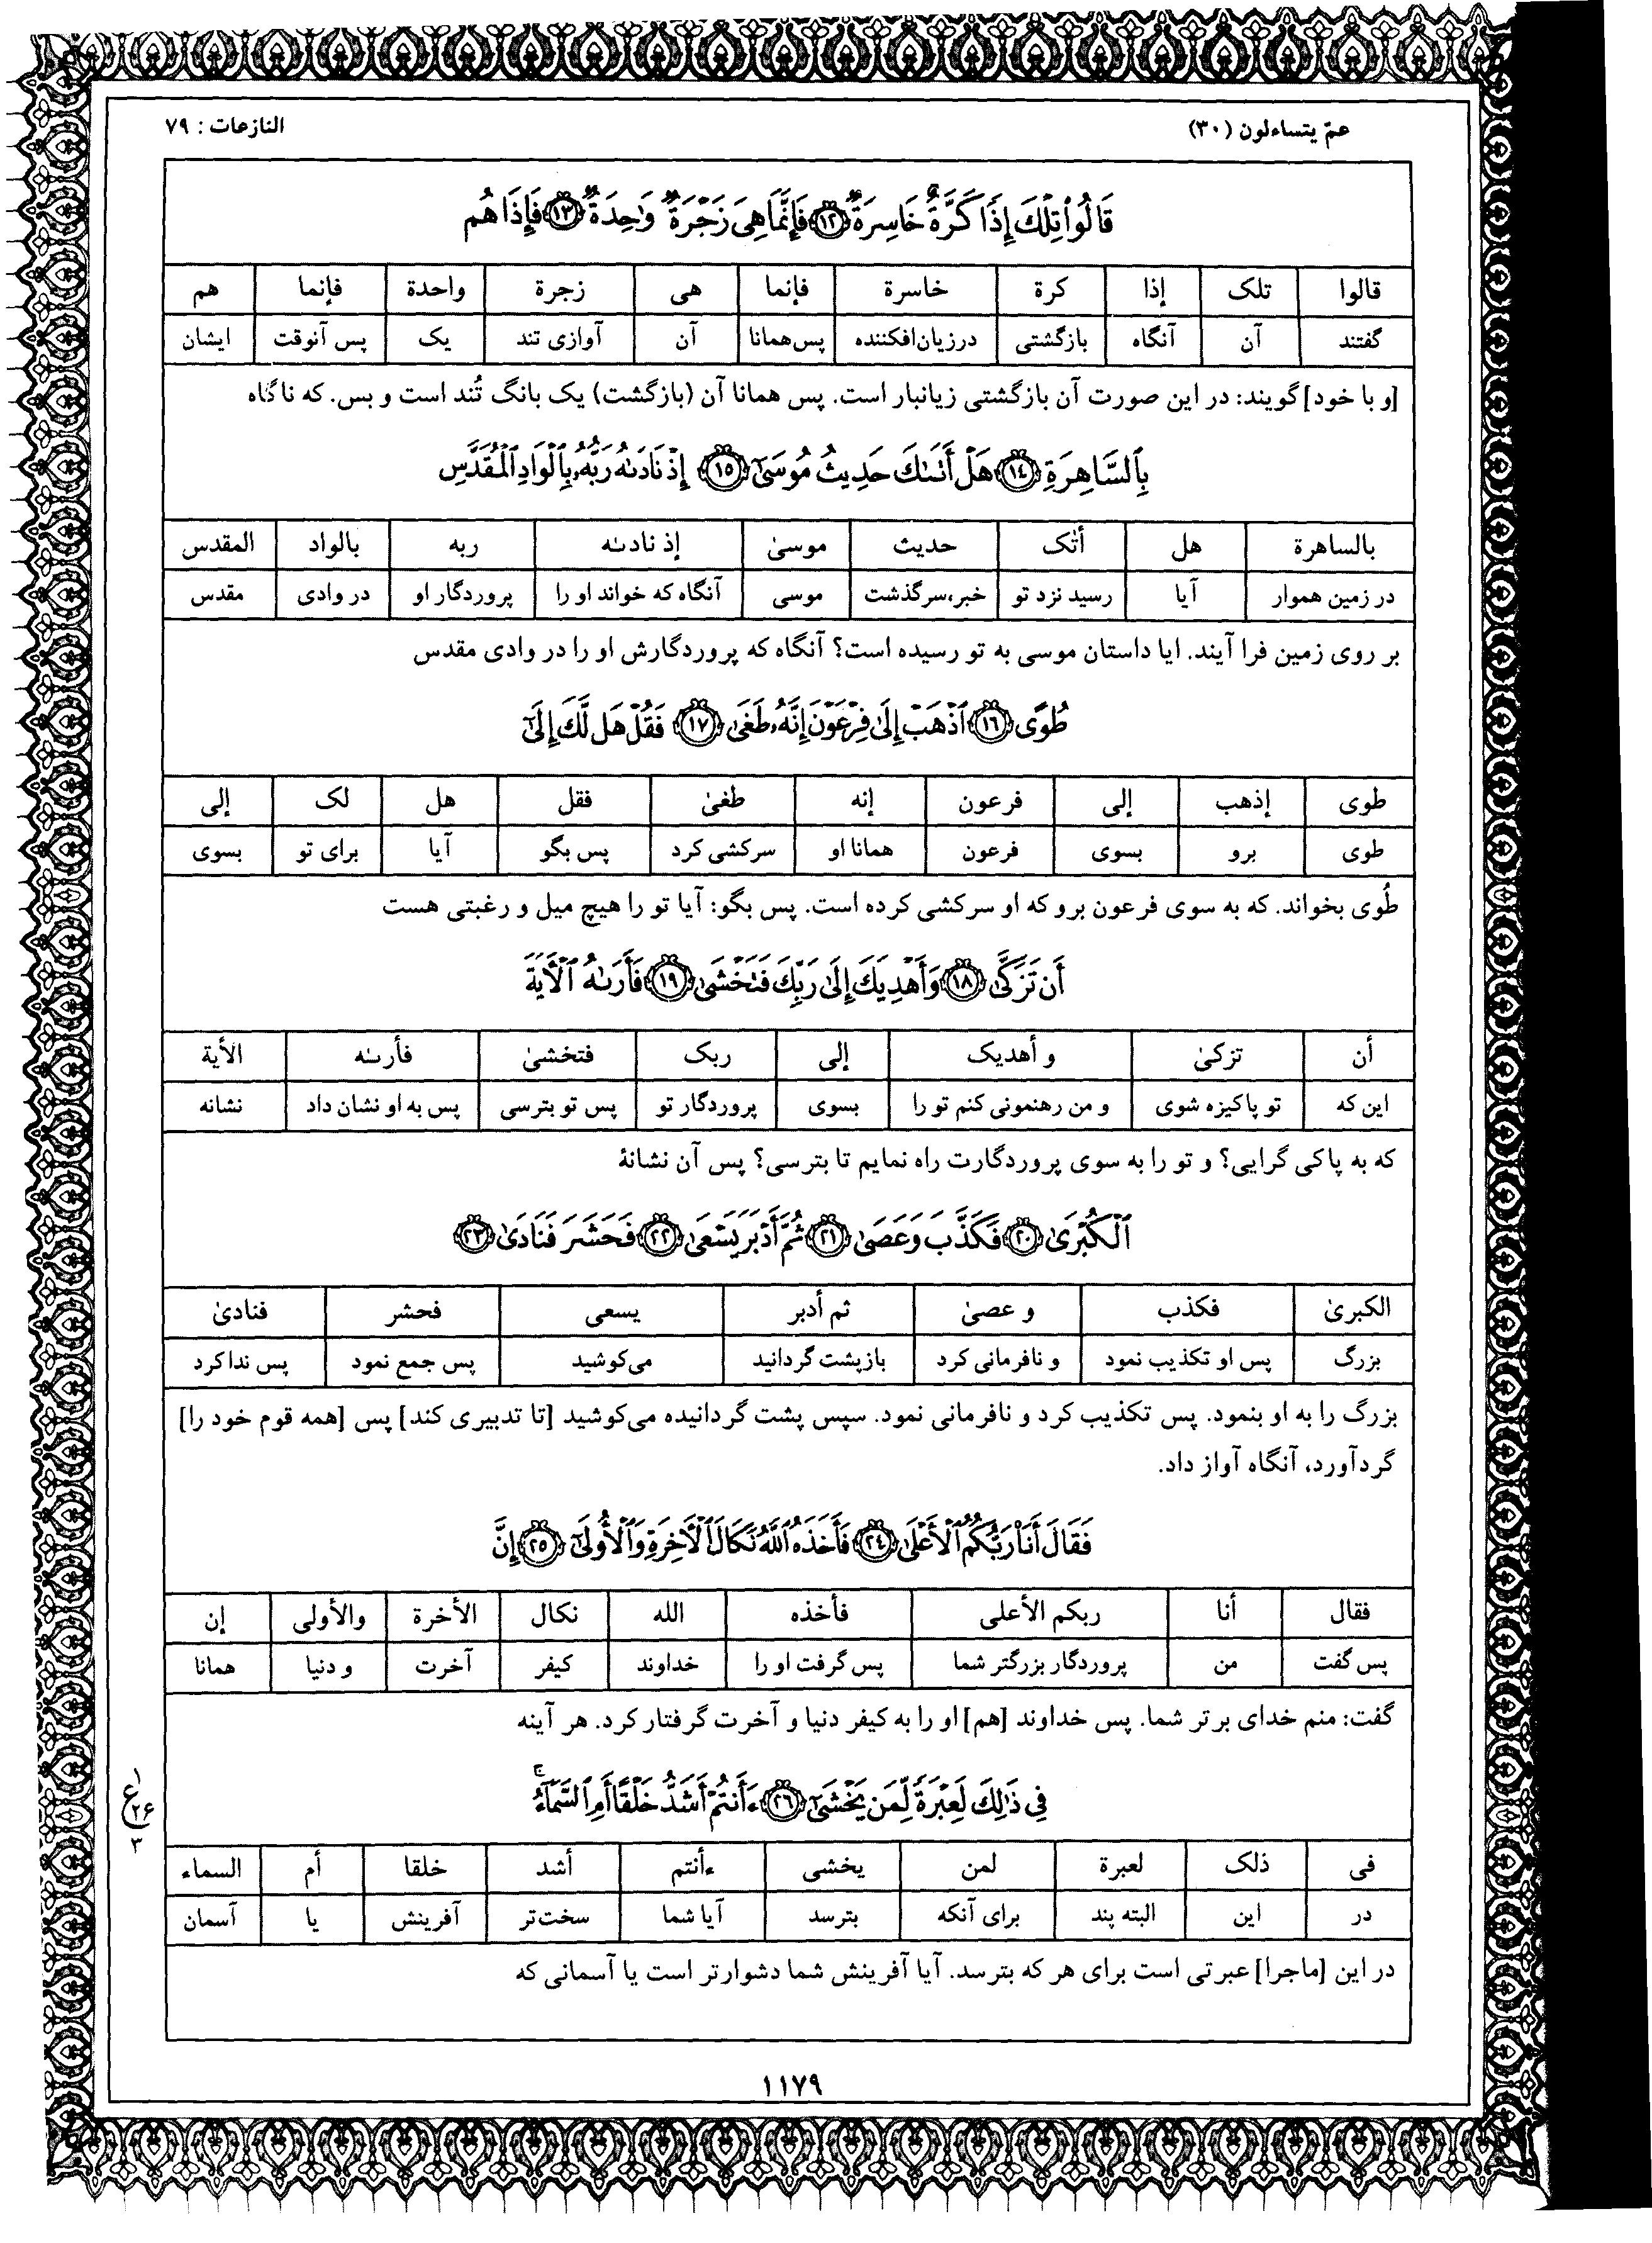 عمّ یتساءلون (۳۰)
النازعات : ۷۹
قَالُواْ تِلْكَ إِذًا كَرَّةٌ خَاسِرَةٌ ١٢ فَإِنَّمَا هِيَ زَجْرَةٌ وَٰحِدَةٌ ١٣ فَإِذَا هُم
قالوا تلک إذا کرة خاسرة فإنما هی زجرة واحدة فإنما هم
گفتند آن آنگاه بازگشتی درزیان‌افکننده پس‌همانا آن آوازی تند یک پس آنوقت ایشان
[و با خود] گویند: در این صورت آن بازگشتی زیانبار است. پس همانا آن (بازگشت) یک بانگ تُند است و بس. که ناگاه
بِٱلسَّاهِرَةِ ١٤ هَلْ أَتَىٰكَ حَدِيثُ مُوسَىٰٓ ١٥ إِذْ نَادَىٰهُ رَبُّهُۥ بِٱلْوَادِ ٱلْمُقَدَّسِ
بالساهرة هل أتٰک حدیث موسیٰ إذ نادىٰه ربه بالواد المقدس
در زمین هموار آیا رسید نزد تو خبر،سرگذشت موسی آنگاه که خواند او را پروردگار او در وادی مقدس
بر روی زمین فرا آیند. ایا داستان موسی به تو رسیده است؟ آنگاه که پروردگارش او را در وادی مقدس
طُوًى ١٦ ٱذْهَبْ إِلَىٰ فِرْعَوْنَ إِنَّهُۥ طَغَىٰ ١٧ فَقُلْ هَل لَّكَ إِلَىٰٓ
طوی إذهب إلی فرعون إنه طغیٰ فقل هل لک إلی
طوی برو بسوی فرعون همانا او سرکشی کرد پس بگو آیا برای تو بسوی
طُوی بخواند. که به سوی فرعون برو که او سرکشی کرده است. پس بگو: آیا تو را هیچ میل و رغبتی هست
أَن تَزَكَّىٰ ١٨ وَأَهْدِيَكَ إِلَىٰ رَبِّكَ فَتَخْشَىٰ ١٩ فَأَرَىٰهُ ٱلْـَٔايَةَ
أن تزکیٰ و أهدیک إلی ربک فتخشیٰ فأرىٰه الأیة
این که تو پاکیزه شوی و من رهنمونی کنم تو را بسوی پروردگار تو پس تو بترسی پس به او نشان داد نشانه
که به پاکی گرایی؟ و تو را به سوی پروردگارت راه نمایم تا بترسی؟ پس آن نشانهٔ
ٱلْكُبْرَىٰ ٢٠ فَكَذَّبَ وَعَصَىٰ ٢١ ثُمَّ أَدْبَرَ يَسْعَىٰ ٢٢ فَحَشَرَ فَنَادَىٰ ٢٣
الکبریٰ فکذب و عصیٰ ثم أدبر یسعی فحشر فنادیٰ
بزرگ پس او تکذیب نمود و نافرمانی کرد بازپشت گردانید می‌کوشید پس جمع نمود پس ندا کرد
بزرگ را به او بنمود. پس تکذیب کرد و نافرمانی نمود. سپس پشت گردانیده می‌کوشید [تا تدبیری کند] پس [همه قوم خود را]
گردآورد، آنگاه آواز داد.
فَقَالَ أَنَا۠ رَبُّكُمُ ٱلْأَعْلَىٰ ٢٤ فَأَخَذَهُ ٱللَّهُ نَكَالَ ٱلْـَٔاخِرَةِ وَٱلْأُولَىٰٓ ٢٥ إِنَّ
فقال أنا ربکم الأعلی فأخذه الله نکال الأخرة والأولی إن
پس گفت من پروردگار بزرگتر شما پس گرفت او را خداوند کیفر آخرت و دنیا همانا
گفت: منم خدای برتر شما. پس خداوند [هم] او را به کیفر دنیا و آخرت گرفتار کرد. هر آینه
فِي ذَٰلِكَ لَعِبْرَةً لِّمَن يَخْشَىٰٓ ٢٦ ءَأَنتُمْ أَشَدُّ خَلْقًا أَمِ ٱلسَّمَآءُ ۚ
فی ذلک لعبرة لمن یخشی ءأنتم أشد خلقا أم السماء
در این البته پند برای آنکه بترسد آیا شما سخت‌تر آفرینش یا آسمان
در این [ماجرا] عبرتی است برای هر که بترسد. آیا آفرینش شما دشوارتر است یا آسمانی که
۱
ع
۲۶
۳
۱۱۷۹